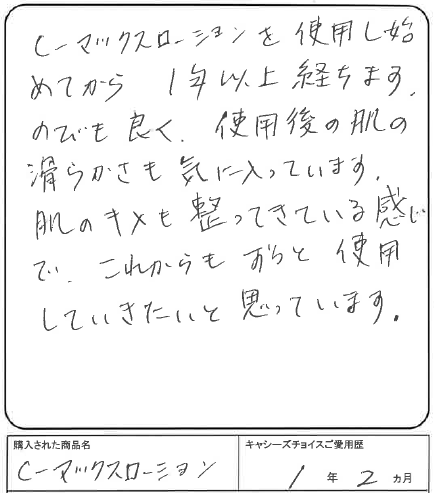 C-マックスローションを使用し始
めてから 1年以上経ちます。
のびも良く、使用後の肌の
滑らかさも気に入っています。
肌のキメも整ってきている感じ
で、これからもずっと使用
していきたいと思っています。
購入された商品名
C-マックスローション
キャシーズチョイスご愛用歴
1年2ヵ月